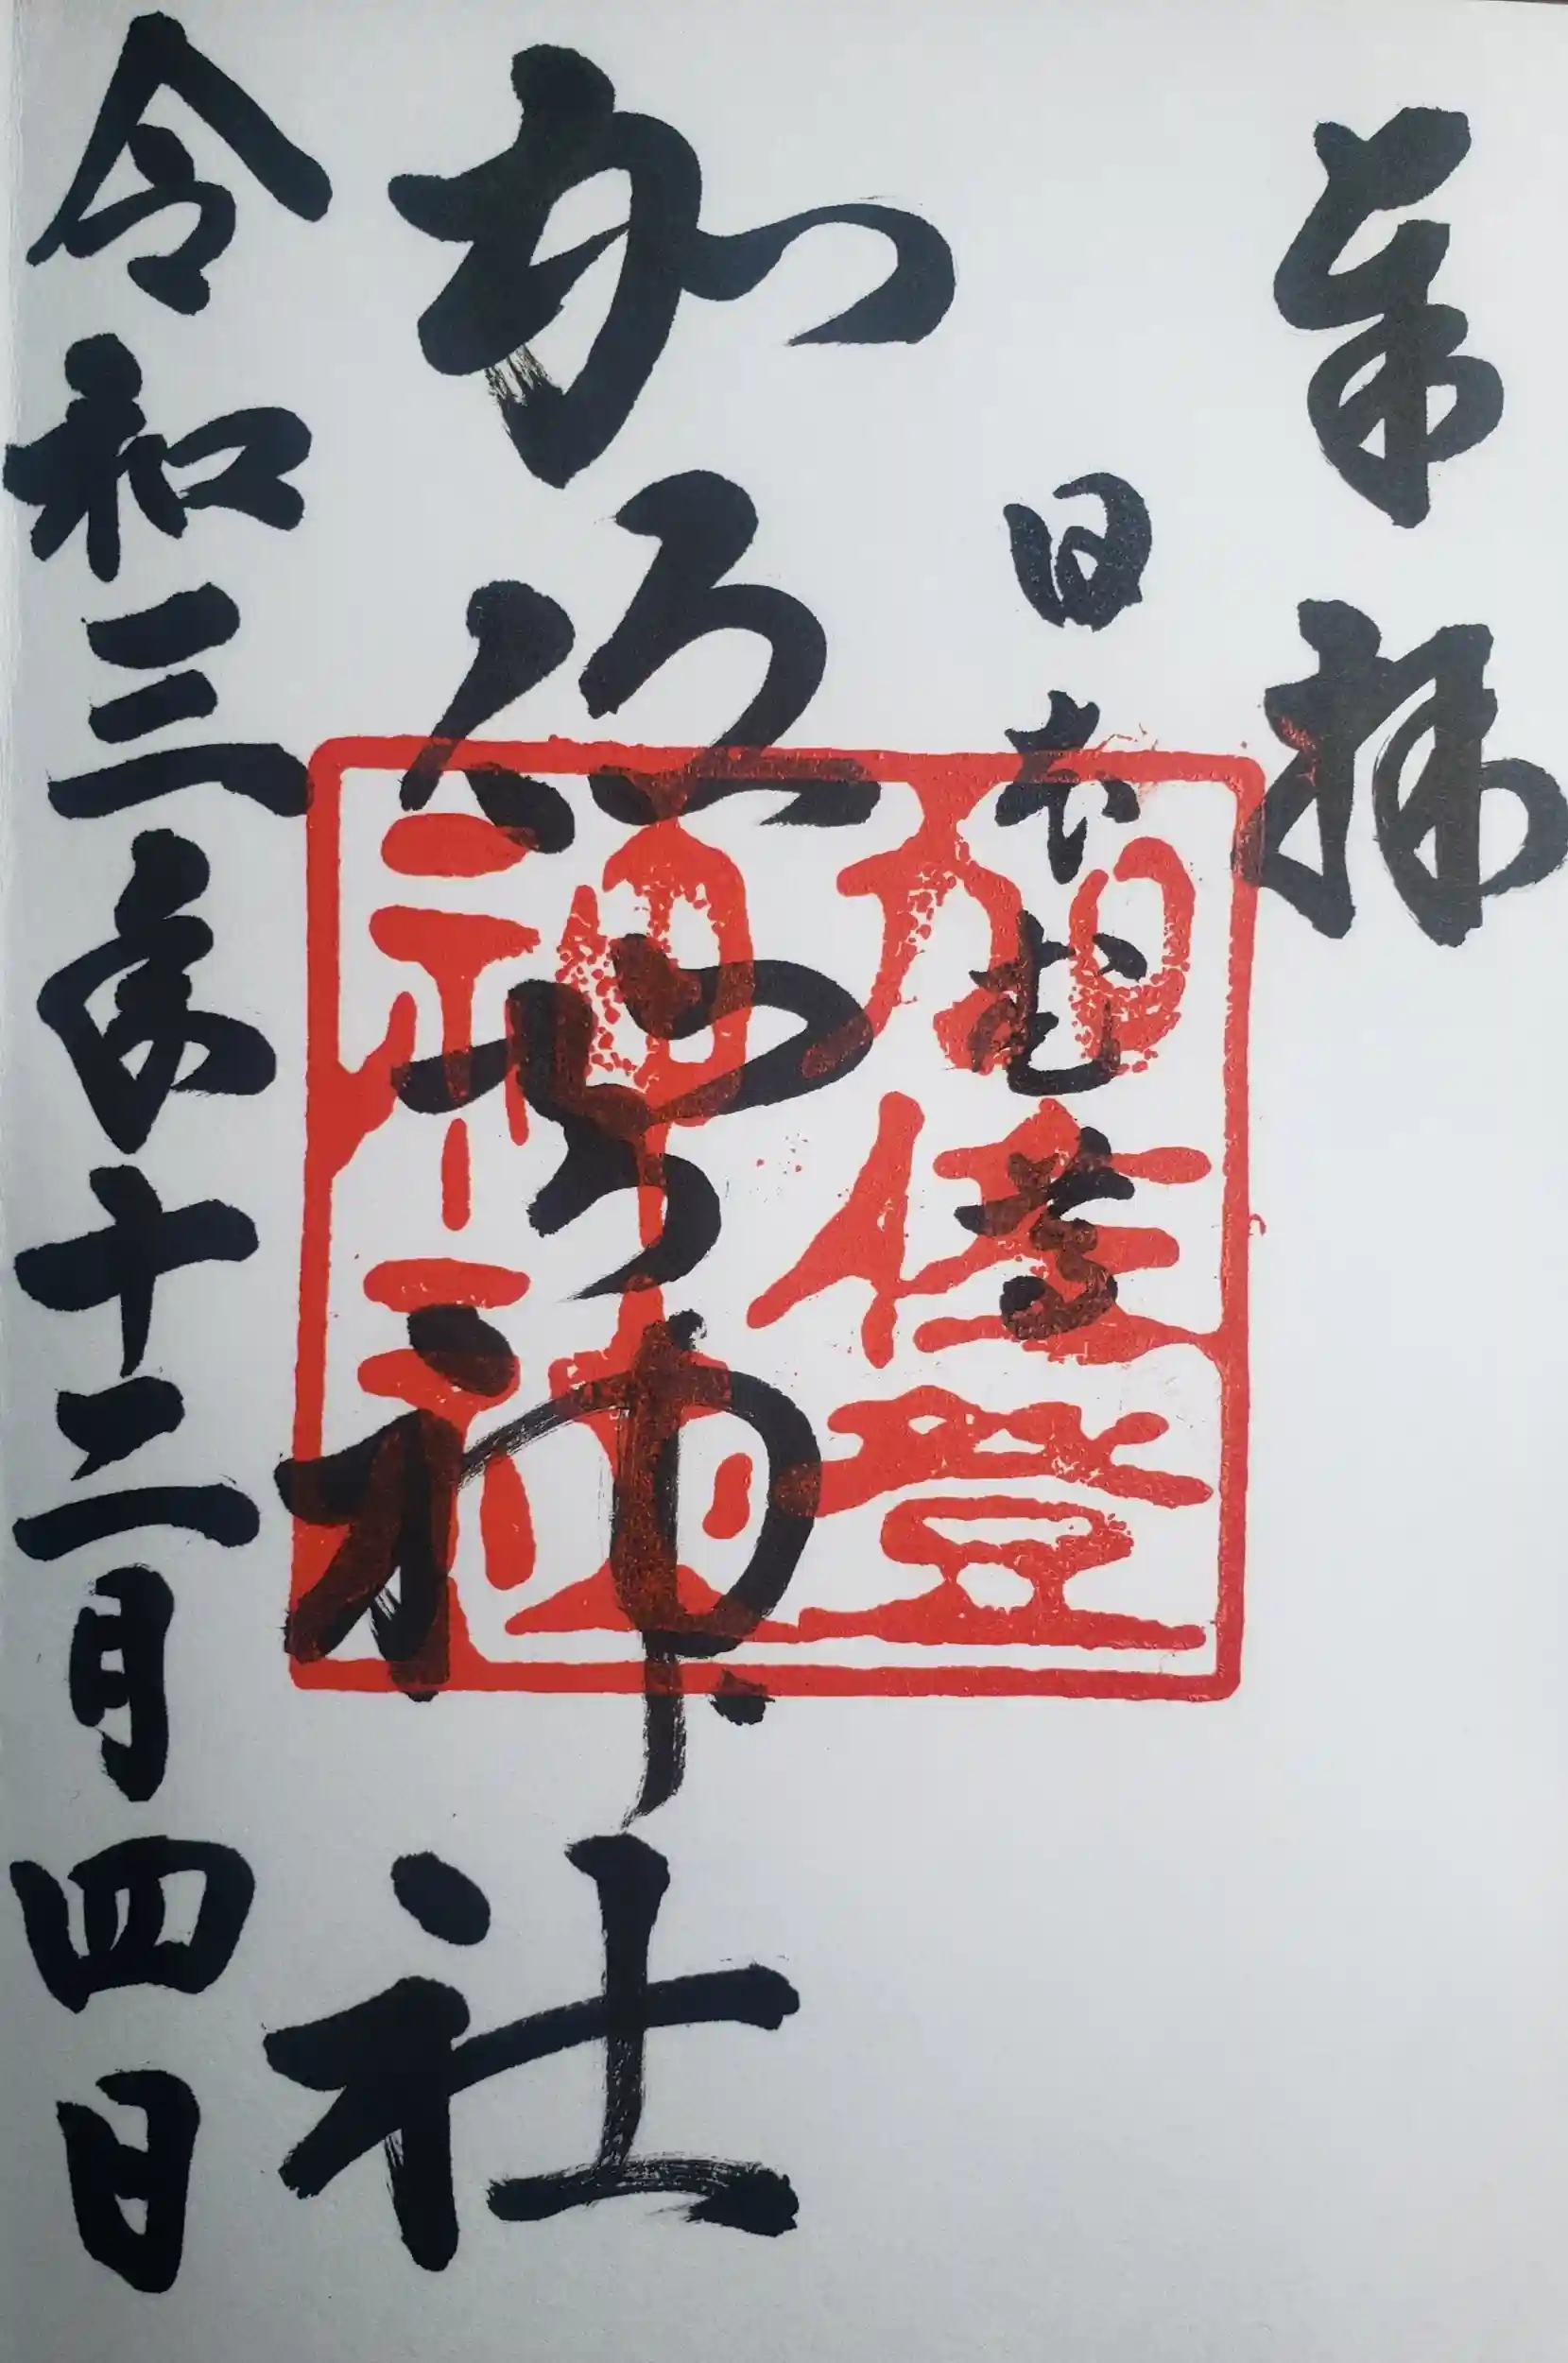 奉拝
日本武尊
加佐登神社
令和三年十二月四日
加佐登
神社